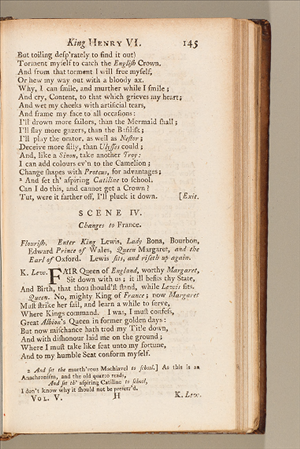 King HENRY VI. 145
But toiling desp'rately to find it out)
Torment myself to catch the English Crown.
And from that torment I will free myself,
Or hew my way out with a bloody ax.
Why, I can smile, and murther while I smile;
And cry, Content, to that which grieves my heart;
And wet my cheeks with artificial tears,
And frame my face to all occasions:
I'll drown more sailors, than the Mermaid shall;
I'll slay more gazers, than the Basilisk;
I'll play the orator, as well as Nestor;
Deceive more slily, than Ulysses could;
And, like a Sinon, take another Troy:
I can add colours ev'n to the Camelion;
Change shapes with Proteus, for advantages;
² And set th' aspiring Catiline to school.
Can I do this, and cannot get a Crown?
Tut, were it farther off, I'll pluck it down. [Exit.
SCENE IV.
Changes to France.
Flourish. Enter King Lewis, Lady Bona, Bourbon,
Edward Prince of Wales, Queen Margaret, and the
Earl of Oxford. Lewis sits, and riseth up again.
K. Lew. FAIR Queen of England, worthy Margaret,
Sit down with us; it ill befits thy State,
And Birth, that thou should'st stand, while Lewis sits.
Queen. No, mighty King of France; now Margaret
Must strike her sail, and learn a while to serve,
Where Kings command. I was, I must confess,
Great Albion's Queen in former golden days:
But now mischance hath trod my Title down,
And with dishonour laid me on the ground;
Where I must take like seat unto my fortune,
And to my humble Seat conform myself.
2 And set the murth'rous Machiavel to school.] As this is an
Anachronism, and the old quarto reads,
And set th' aspiring Catiline to school,
I don't know why it should not be preferr'd.
VOL. V. H K. Lew.